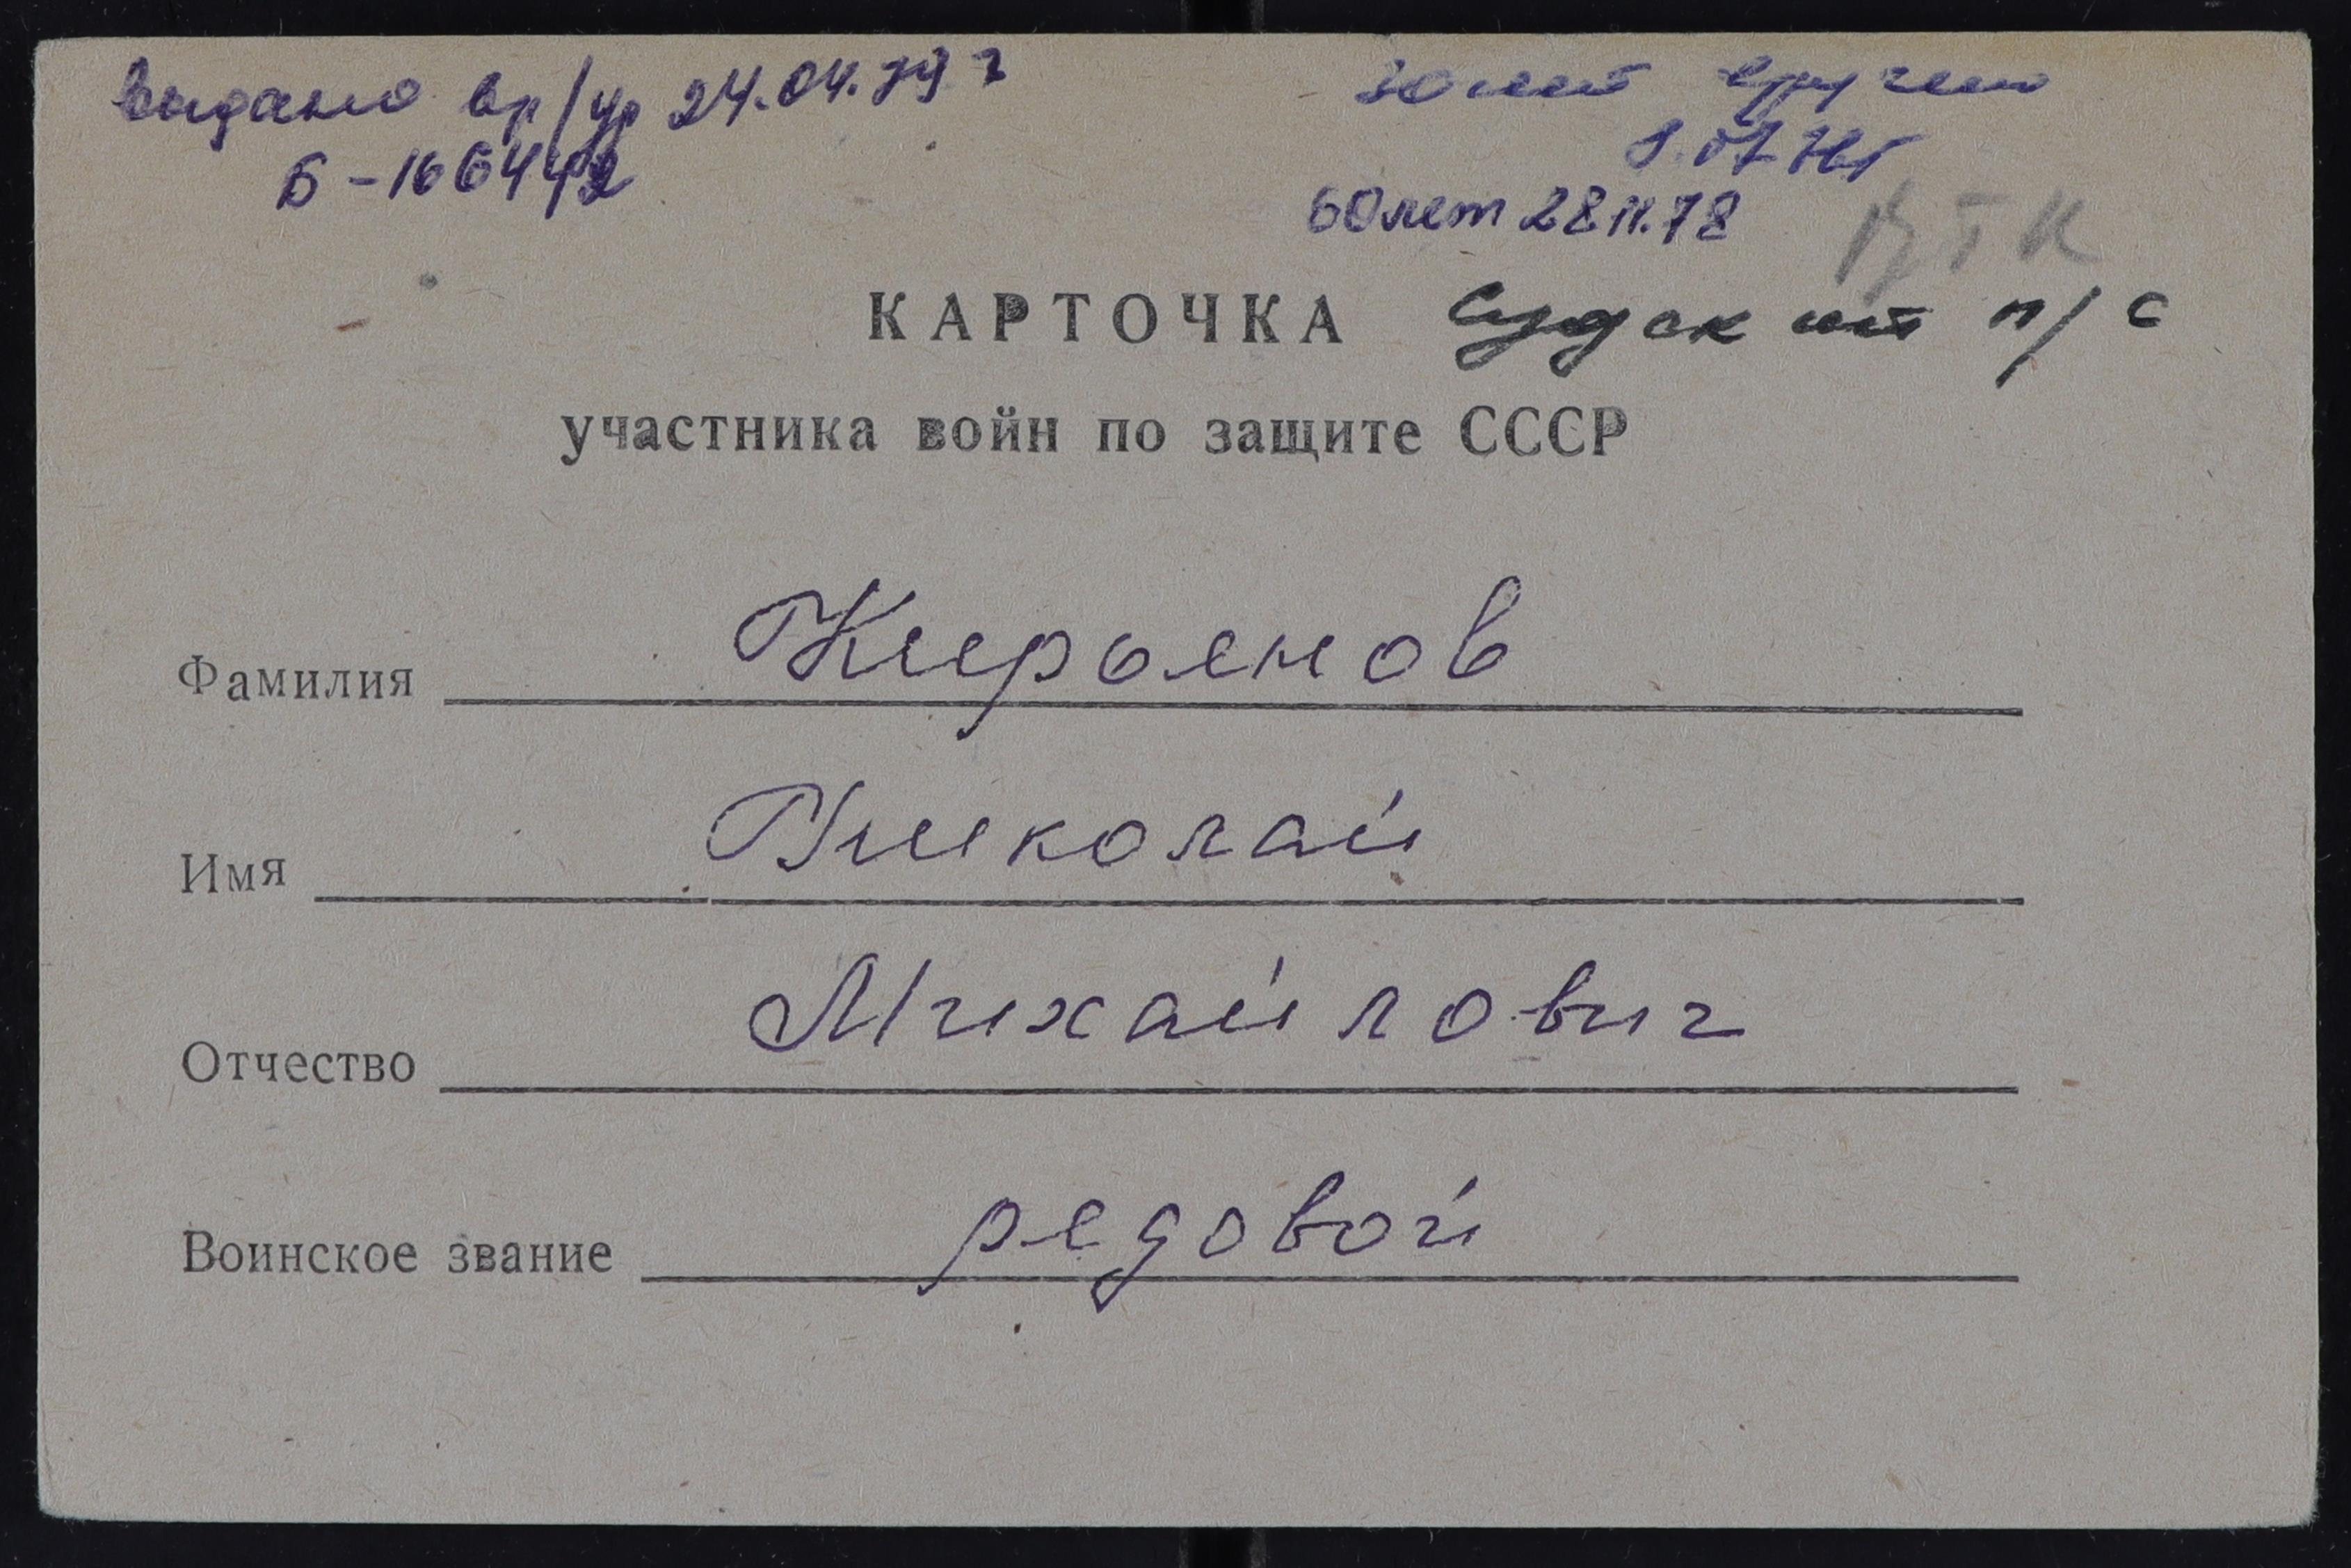 выдано вр/ур 24.04.79 г
Б-166442
30 лет вручено
8.07.76г
60 лет 28.11.78
ВТК
КАРТОЧКА
п/с
участника войн по защите СССР
Фамилия Кирьянов
Имя Николай
Отчество Михайлович
Воинское звание рядовой